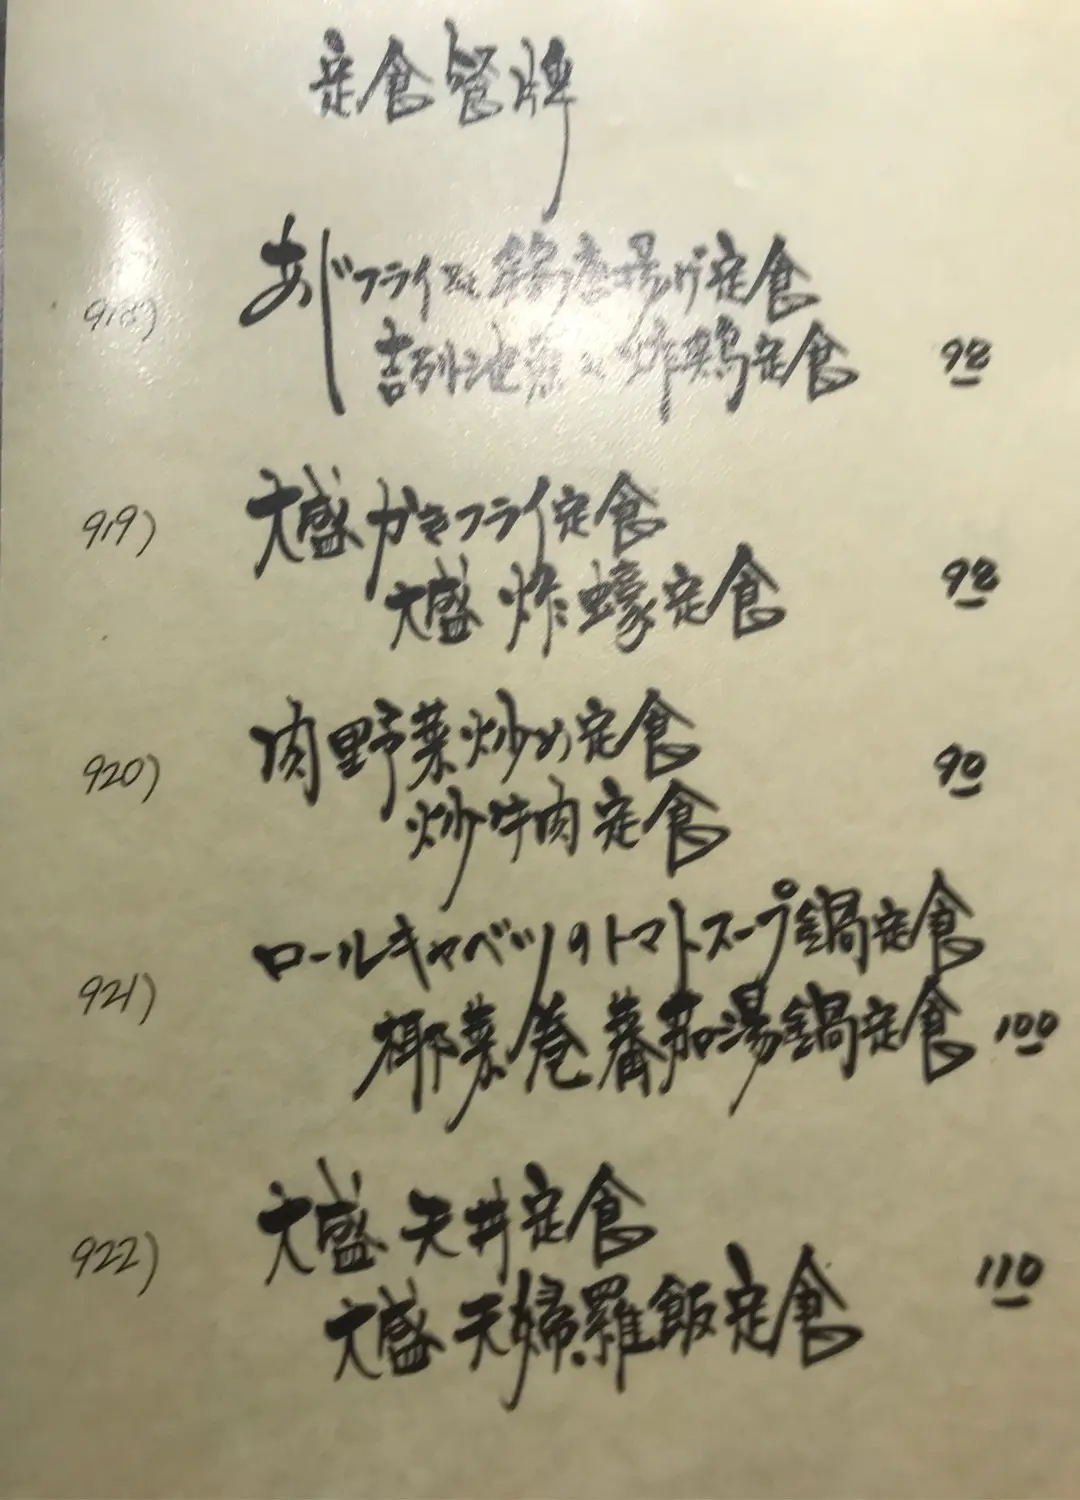 定食餐牌
918) あじフライと鶏唐揚げ定食
吉列池魚 炸鶏定食 98
919) 大盛 カキフライ定食
大盛 炸蠔定食 98
920) 肉野菜炒め定食 90
炒牛肉定食
921) ロールキャベツのトマトスープ鍋定食
椰菜巻蕃茄湯鍋定食 100
922) 大盛 天丼定食
大盛 天婦羅飯定食 110